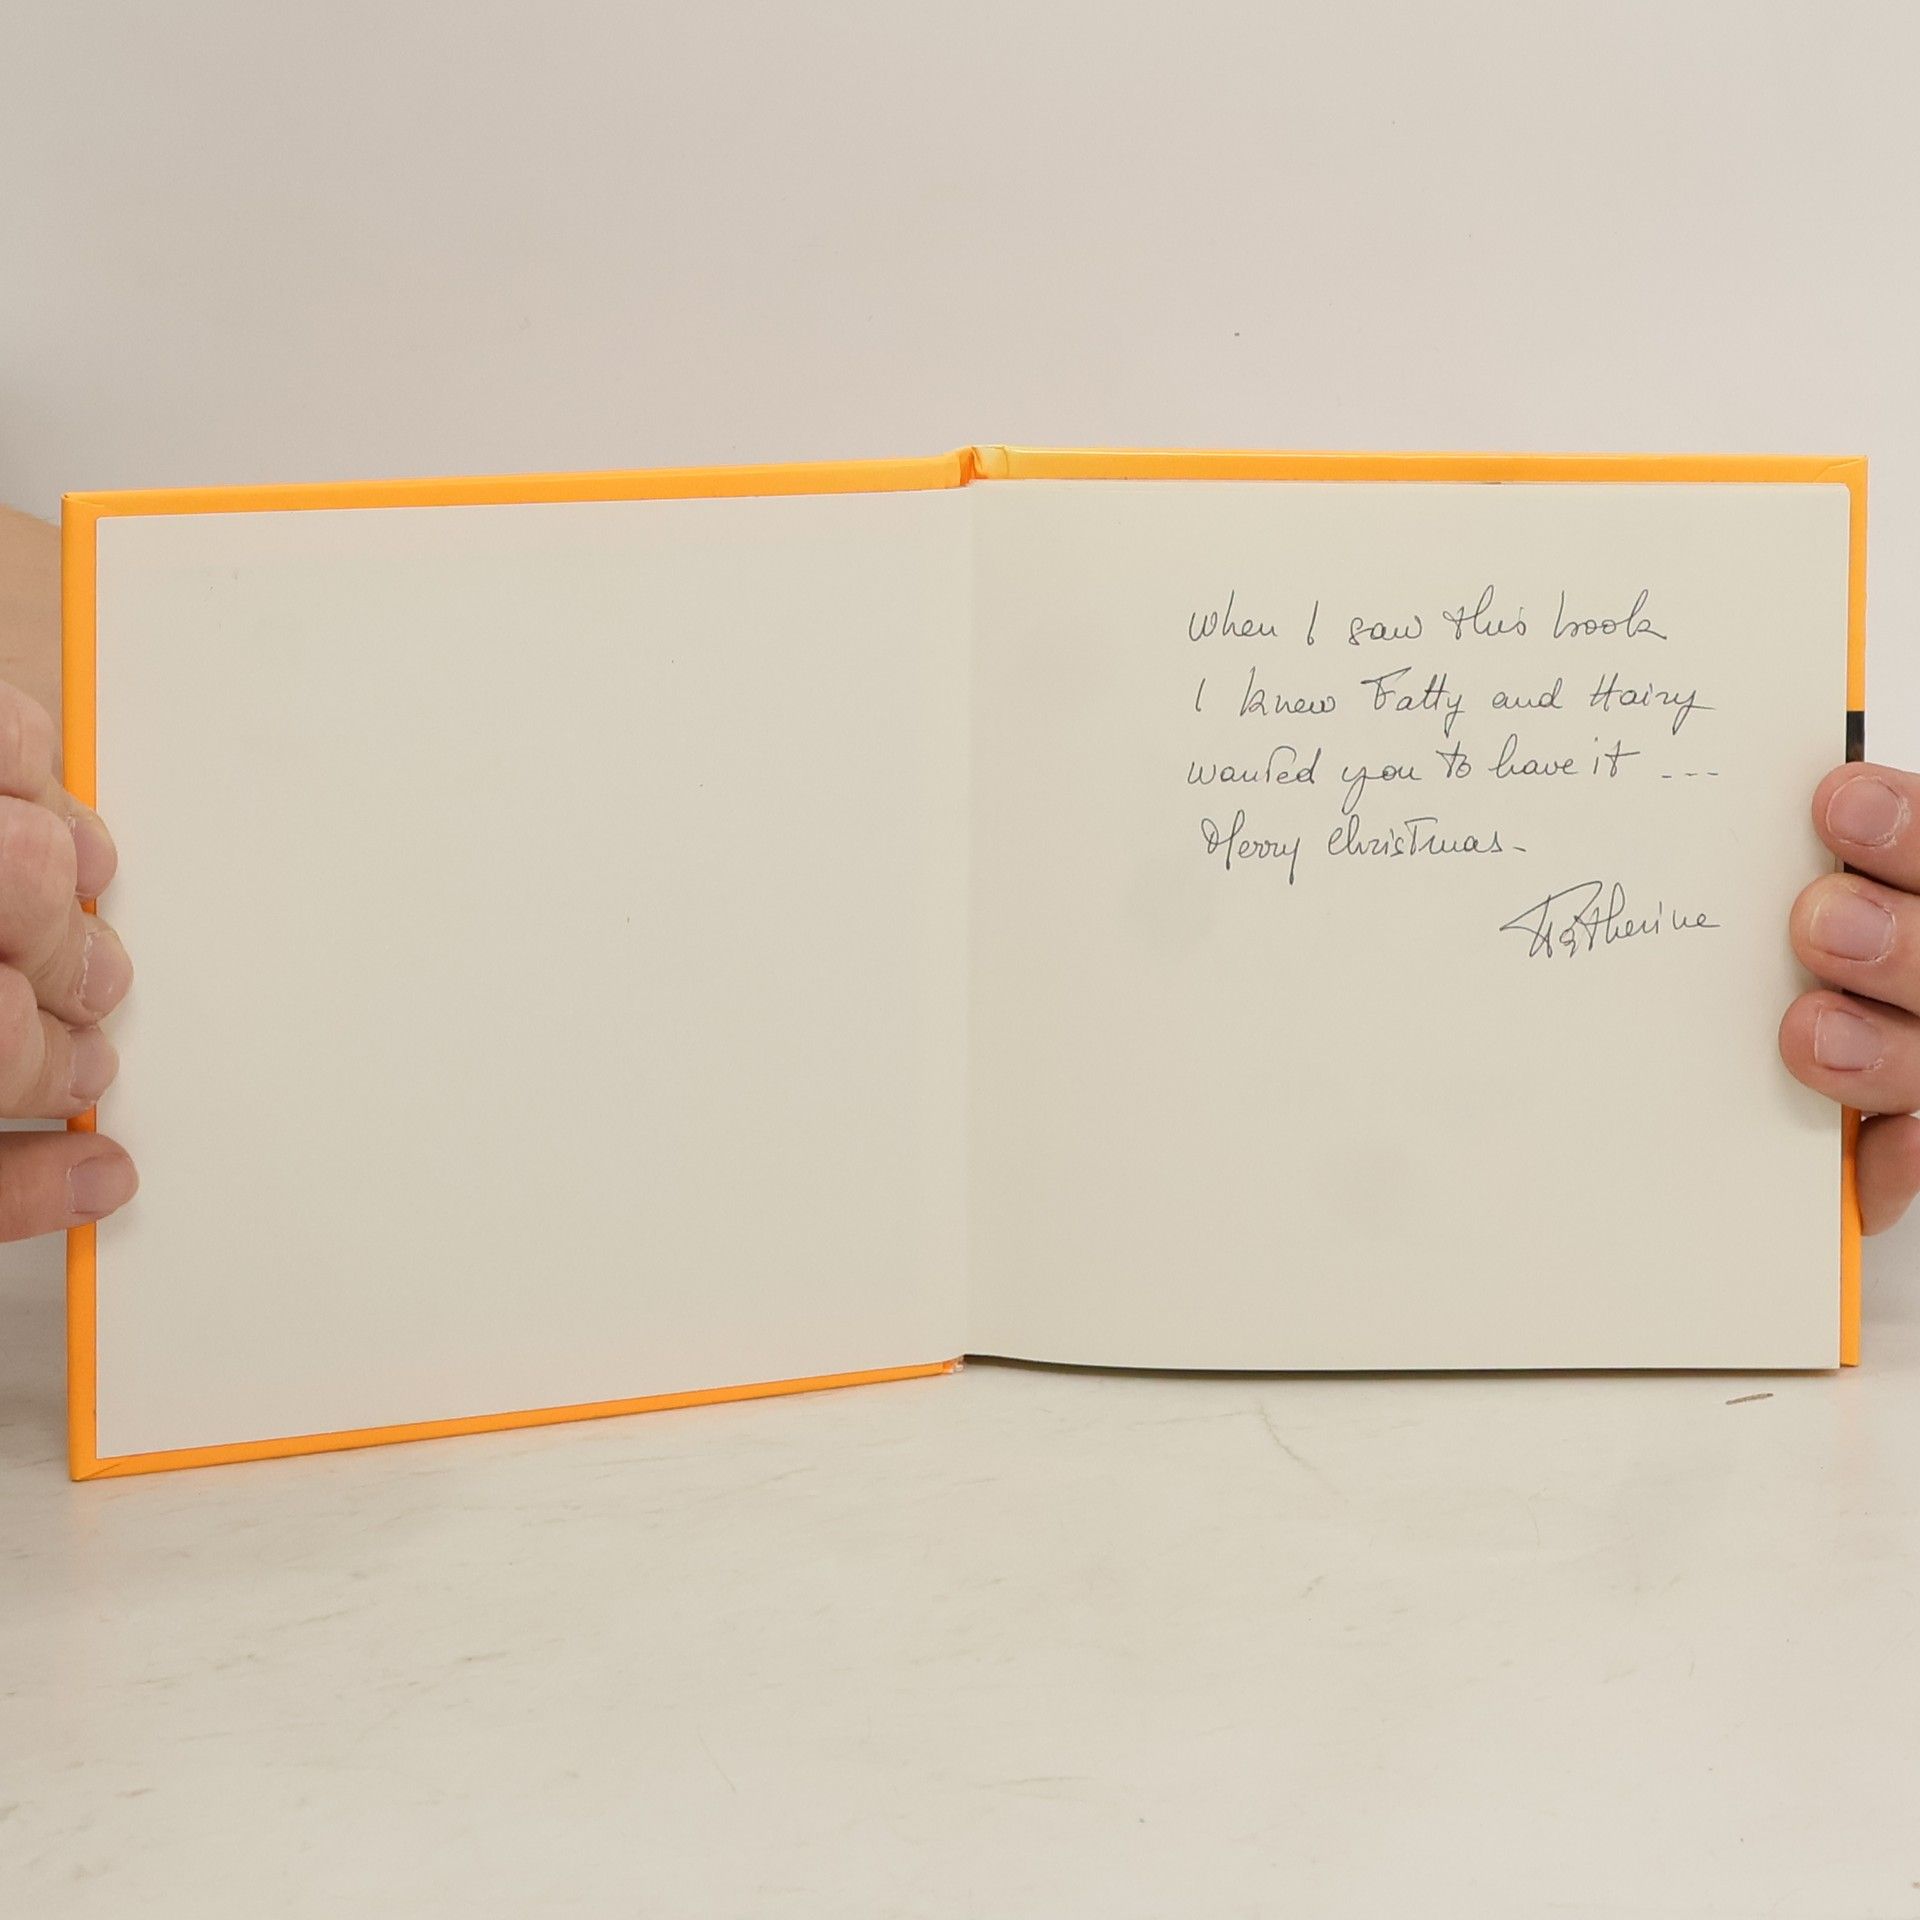 When I saw this book
I knew Fatty and Hairy
wanted you to have it ---
Merry Christmas-
Katherine